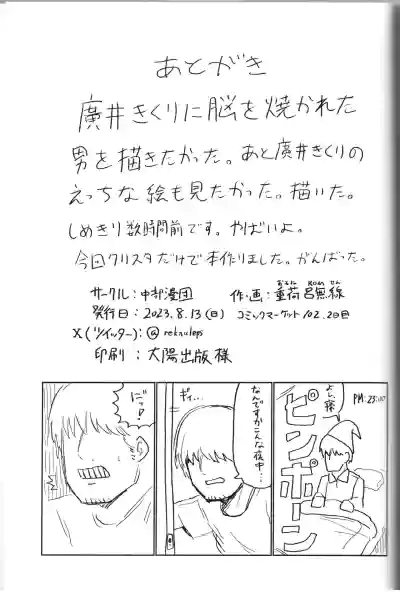 あとがき
廣井きくりに脳を焼かれた
男を描きたかった。あと廣井きくりの
えっちな絵も見たかった。描いた。
しめきり数時間前です。やばいよ。
今回クリスタだけで本作りました。がんばった。
サークル：中部漫団
発行日：2023.8.13(日) コミックマーケット102.2日目
X(ツイッター)：@
印刷：太陽出版様
PM:23:00
よし寝
ピンポーン
なんですかこんな夜中…
ギィ…